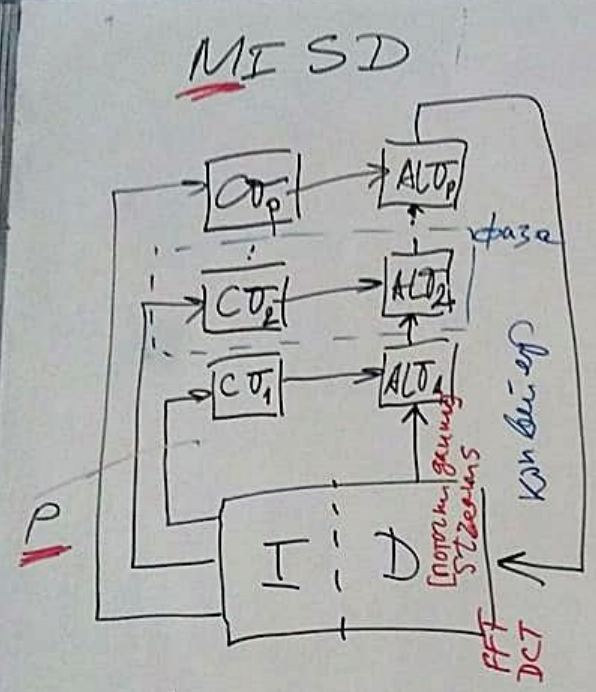 MISD
CU_p
ALU_p
фаза
CU_2
ALU_2
CU_1
ALU_1
конвейер
P
I
D
[поточн данны
streams
FFT
DCT